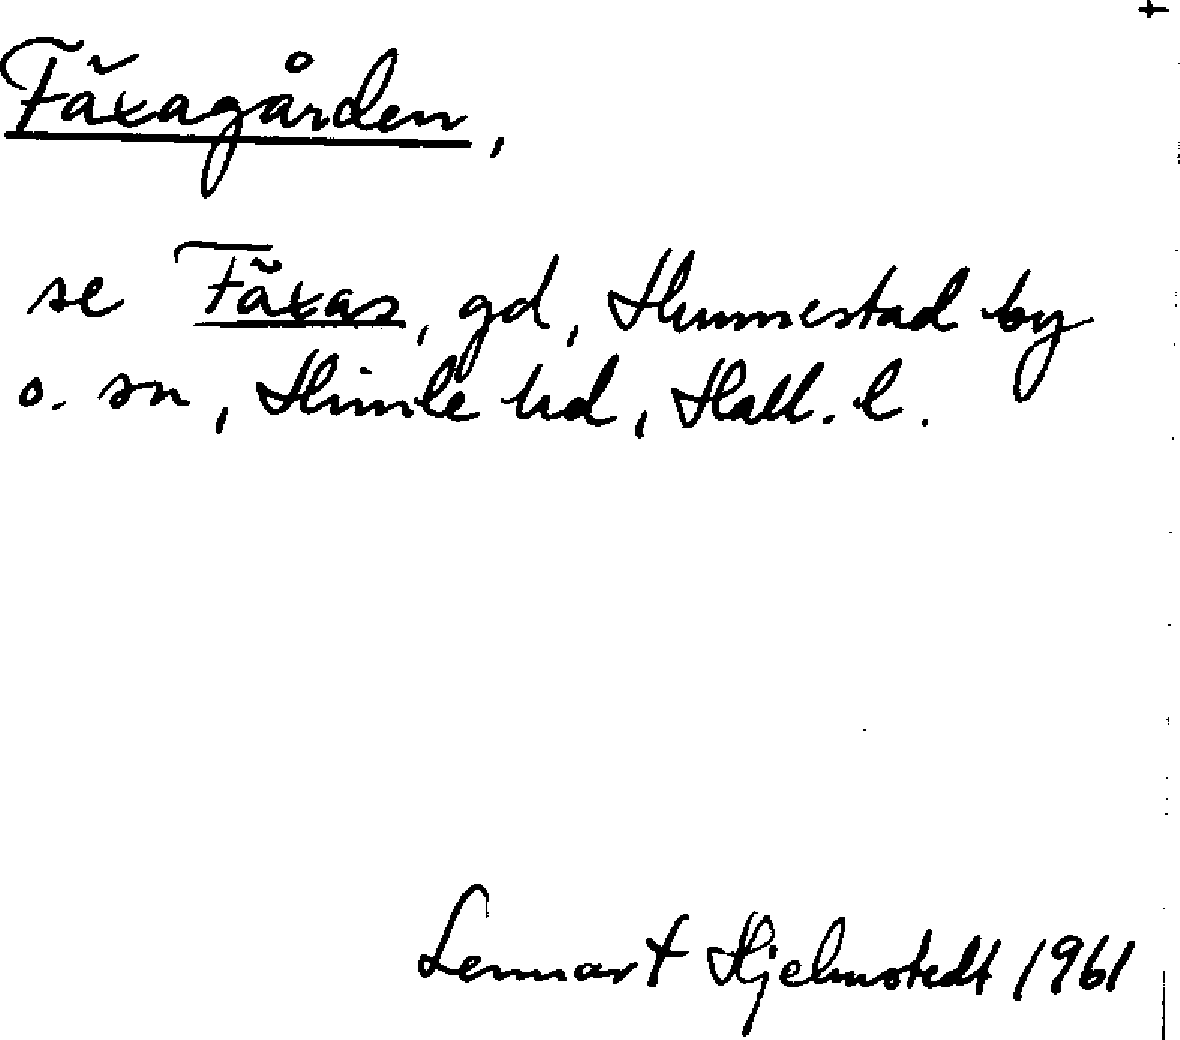 Fäxagården,
se Fäxas, gd, Hunnestad by
o. sn, Himle hd, Hall. l.
Lennart Hjelmstedt 1961